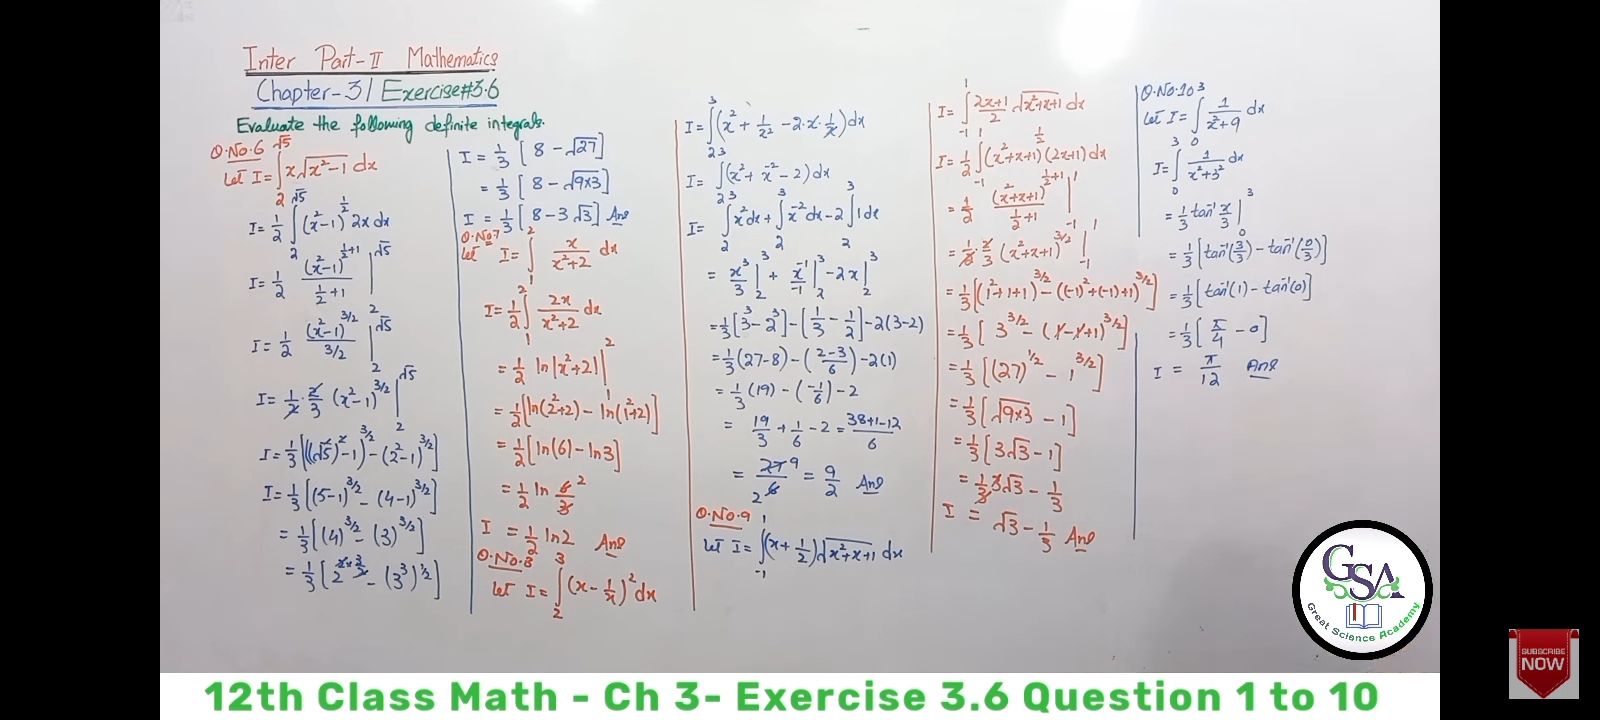 Inter Part-II Mathematics
Chapter-3 / Exercise#3.6
Evaluate the following definite integrals.
Q.No.6
Let I = ∫₂^√5 x√(x²-1) dx
I = 1/2 ∫₂^√5 (x²-1)^(1/2) 2x dx
I = 1/2 (x²-1)^(1/2+1) / (1/2+1) |₂^√5
I = 1/2 (x²-1)^(3/2) / (3/2) |₂^√5
I = 1/2 · 2/3 (x²-1)^(3/2) |₂^√5
I = 1/3 [((√5)²-1)^(3/2) - (2²-1)^(3/2)]
I = 1/3 [(5-1)^(3/2) - (4-1)^(3/2)]
= 1/3 [(4)^(3/2) - (3)^(3/2)]
= 1/3 [2^(2×3/2) - (3³)^(1/2)]
I = 1/3 [8 - √27]
= 1/3 [8 - √(9×3)]
I = 1/3 [8 - 3√3] Ans
Q.No7
Let I = ∫₁² x/(x²+2) dx
I = 1/2 ∫₁² 2x/(x²+2) dx
= 1/2 ln|x²+2| |₁²
= 1/2 [ln(2²+2) - ln(1²+2)]
= 1/2 [ln(6) - ln3]
= 1/2 ln 6/3 2
I = 1/2 ln2 Ans
Q.No.8
Let I = ∫₂³ (x - 1/x)² dx
I = ∫₂³ (x² + 1/x² - 2·x·1/x) dx
I = ∫₂³ (x² + x⁻² - 2) dx
I = ∫₂³ x² dx + ∫₂³ x⁻² dx - 2∫₂³ 1 dx
= x³/3 |₂³ + x⁻¹/-1 |₂³ - 2x |₂³
= 1/3 [3³-2³] - [1/3 - 1/2] - 2(3-2)
= 1/3 (27-8) - ((2-3)/6) - 2(1)
= 1/3 (19) - (-1/6) - 2
= 19/3 + 1/6 - 2 = (38+1-12)/6
= 27 9 / 2 6 = 9/2 Ans
Q.No.9
Let I = ∫₋₁¹ (x + 1/2) √(x²+x+1) dx
I = ∫₋₁¹ (2x+1)/2 √(x²+x+1) dx
I = 1/2 ∫₋₁¹ (x²+x+1)^(1/2) (2x+1) dx
= 1/2 (x²+x+1)^(1/2+1) / (1/2+1) |₋₁¹
= 1/2 · 2/3 (x²+x+1)^(3/2) |₋₁¹
= 1/3 [(1²+1+1)^(3/2) - ((-1)²+(-1)+1)^(3/2)]
= 1/3 [3^(3/2) - (1-1+1)^(3/2)]
= 1/3 [(27)^(1/2) - 1^(3/2)]
= 1/3 [√(9×3) - 1]
= 1/3 [3√3 - 1]
= 1/3 3√3 - 1/3
I = √3 - 1/3 Ans
Q.No.10
Let I = ∫₀³ 1/(x²+9) dx
I = ∫₀³ 1/(x²+3²) dx
= 1/3 tan⁻¹ x/3 |₀³
= 1/3 [tan⁻¹(3/3) - tan⁻¹(0/3)]
= 1/3 [tan⁻¹(1) - tan⁻¹(0)]
= 1/3 [π/4 - 0]
I = π/12 Ans
GSA
Great Science Academy
SUBSCRIBE
NOW
12th Class Math - Ch 3- Exercise 3.6 Question 1 to 10